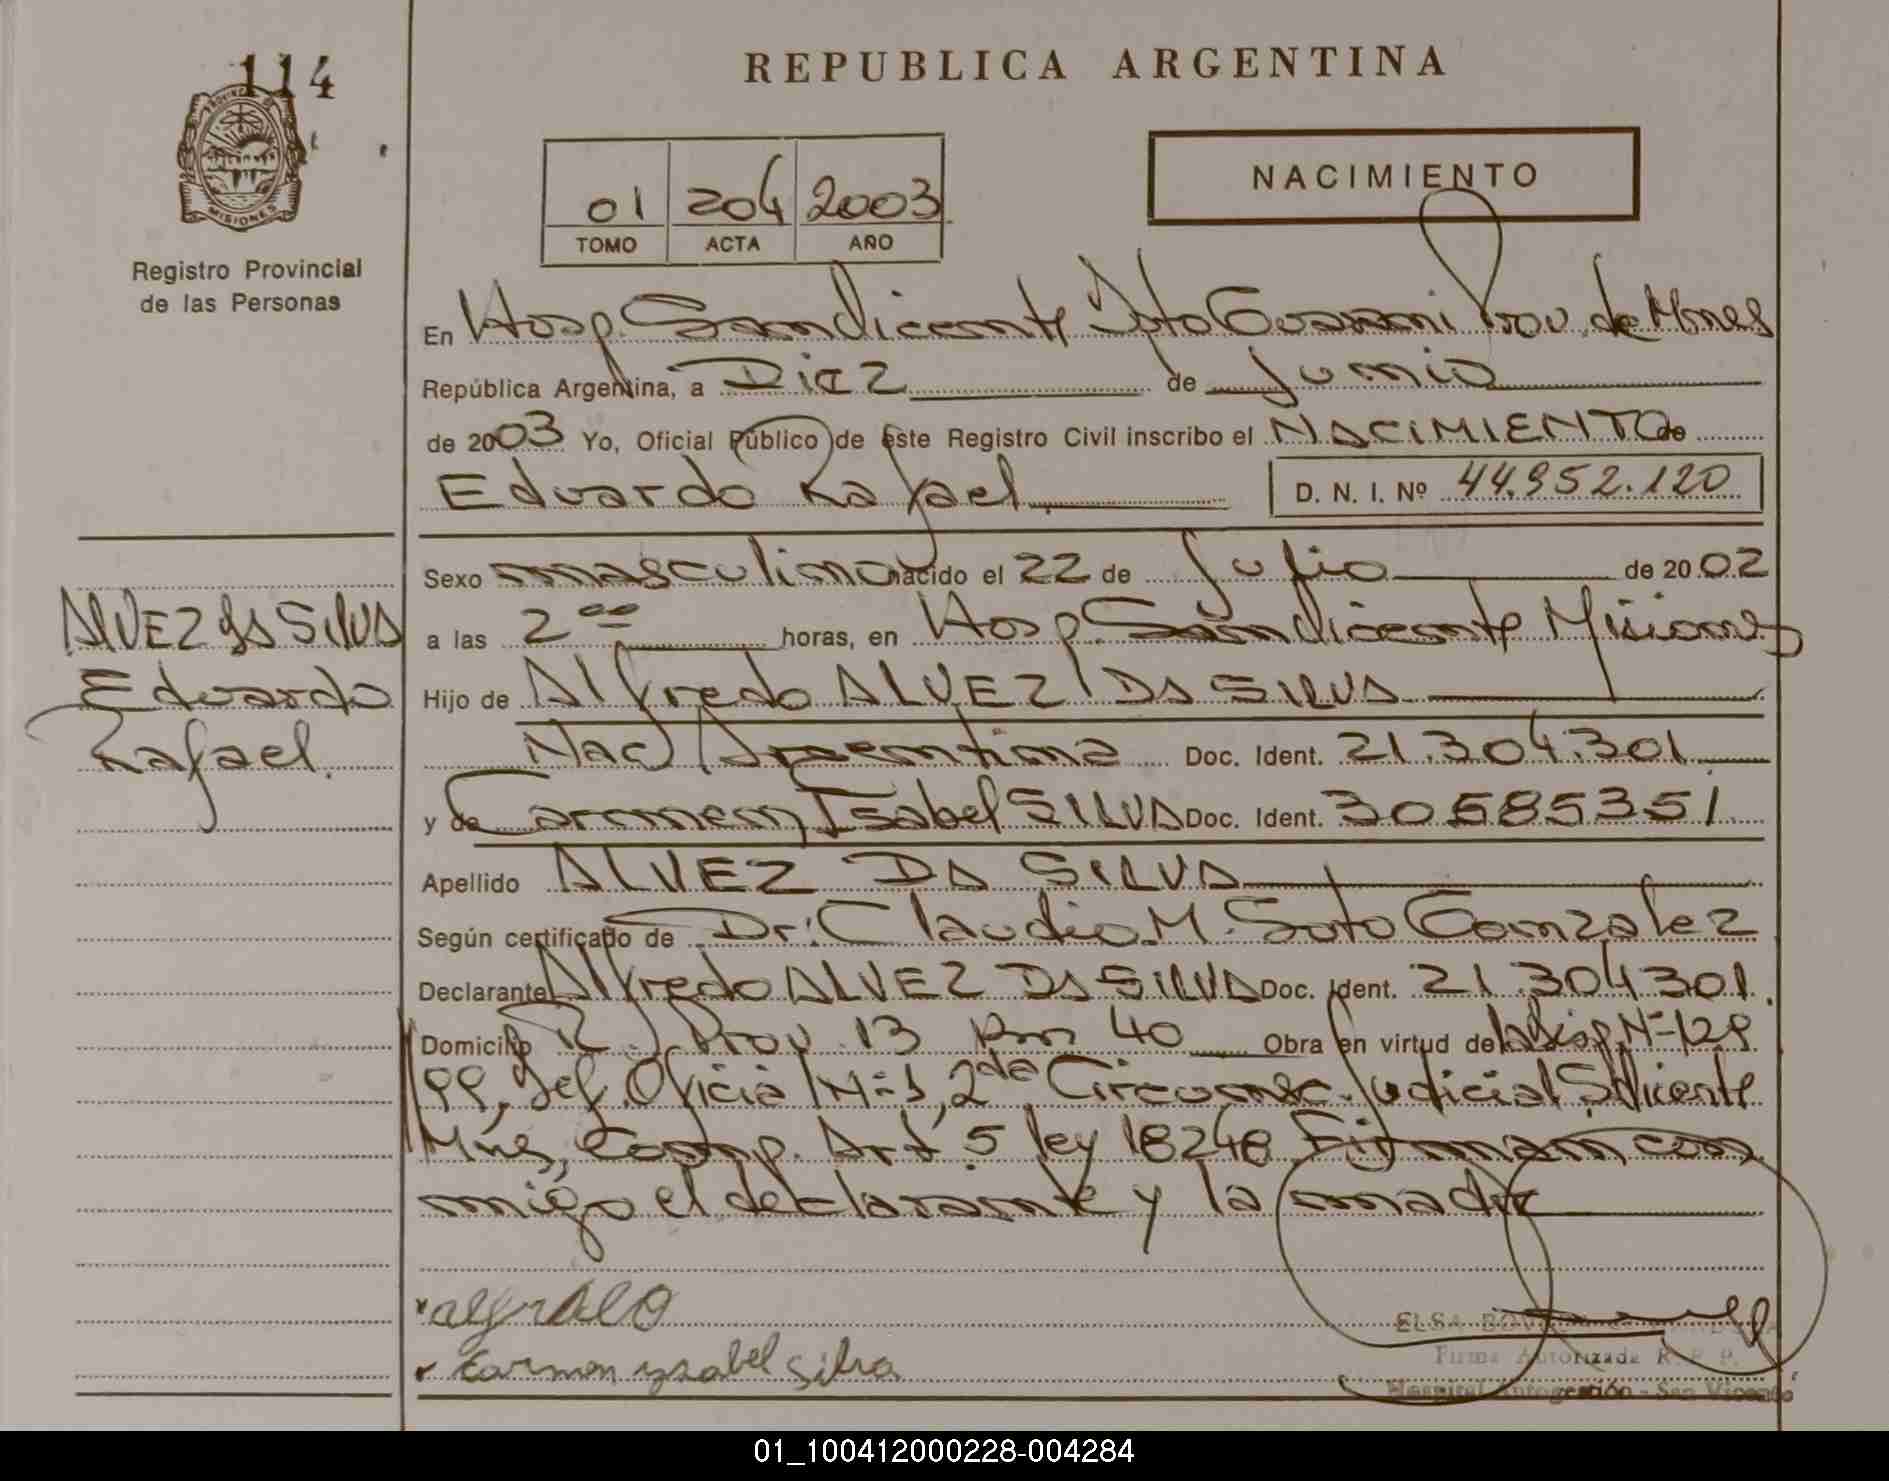 114
REPUBLICA ARGENTINA
PROVINCIA DE
MISIONES
Registro Provincial
de las Personas
01 204 2003
TOMO ACTA AÑO
NACIMIENTO
En Hosp. San Vicente Dpto Guarani Prov. de Mnes
República Argentina, a Diez de junio
de 2003 Yo, Oficial Público de este Registro Civil inscribo el NACIMIENTO de
Eduardo Rafael D. N. I. Nº 44.952.120
Sexo masculino nacido el 22 de Julio de 2002
a las 2 00 horas, en Hosp. San Vicente Misiones
Hijo de Alfredo ALVEZ DA SILVA
Nac Argentina Doc. Ident. 21.304.301
y de Carmen Isabel SILVA Doc. Ident. 30585351
Apellido ALVEZ DA SILVA
Según certificado de Dr: Claudio M. Soto Gonzalez
Declarante Alfredo ALVEZ DA SILVA Doc. Ident. 21.304301
Domicilio R. Prov 13 km 40 Obra en virtud de la Disp Nº 129
99, Def. Oficial Nº 1, 2da Circunsc. Judicial S. Vicente
Mnes, Comp. Art 5 ley 18248 Firman con
migo el declarante y la madre
ALVEZ DA SILVA
Eduardo
Rafael.
alfredo
Carmen ysabel Silva
ELSA
Firma Autorizada R. P. P.
Hospital Autogestión - San Vicente
01_100412000228-004284